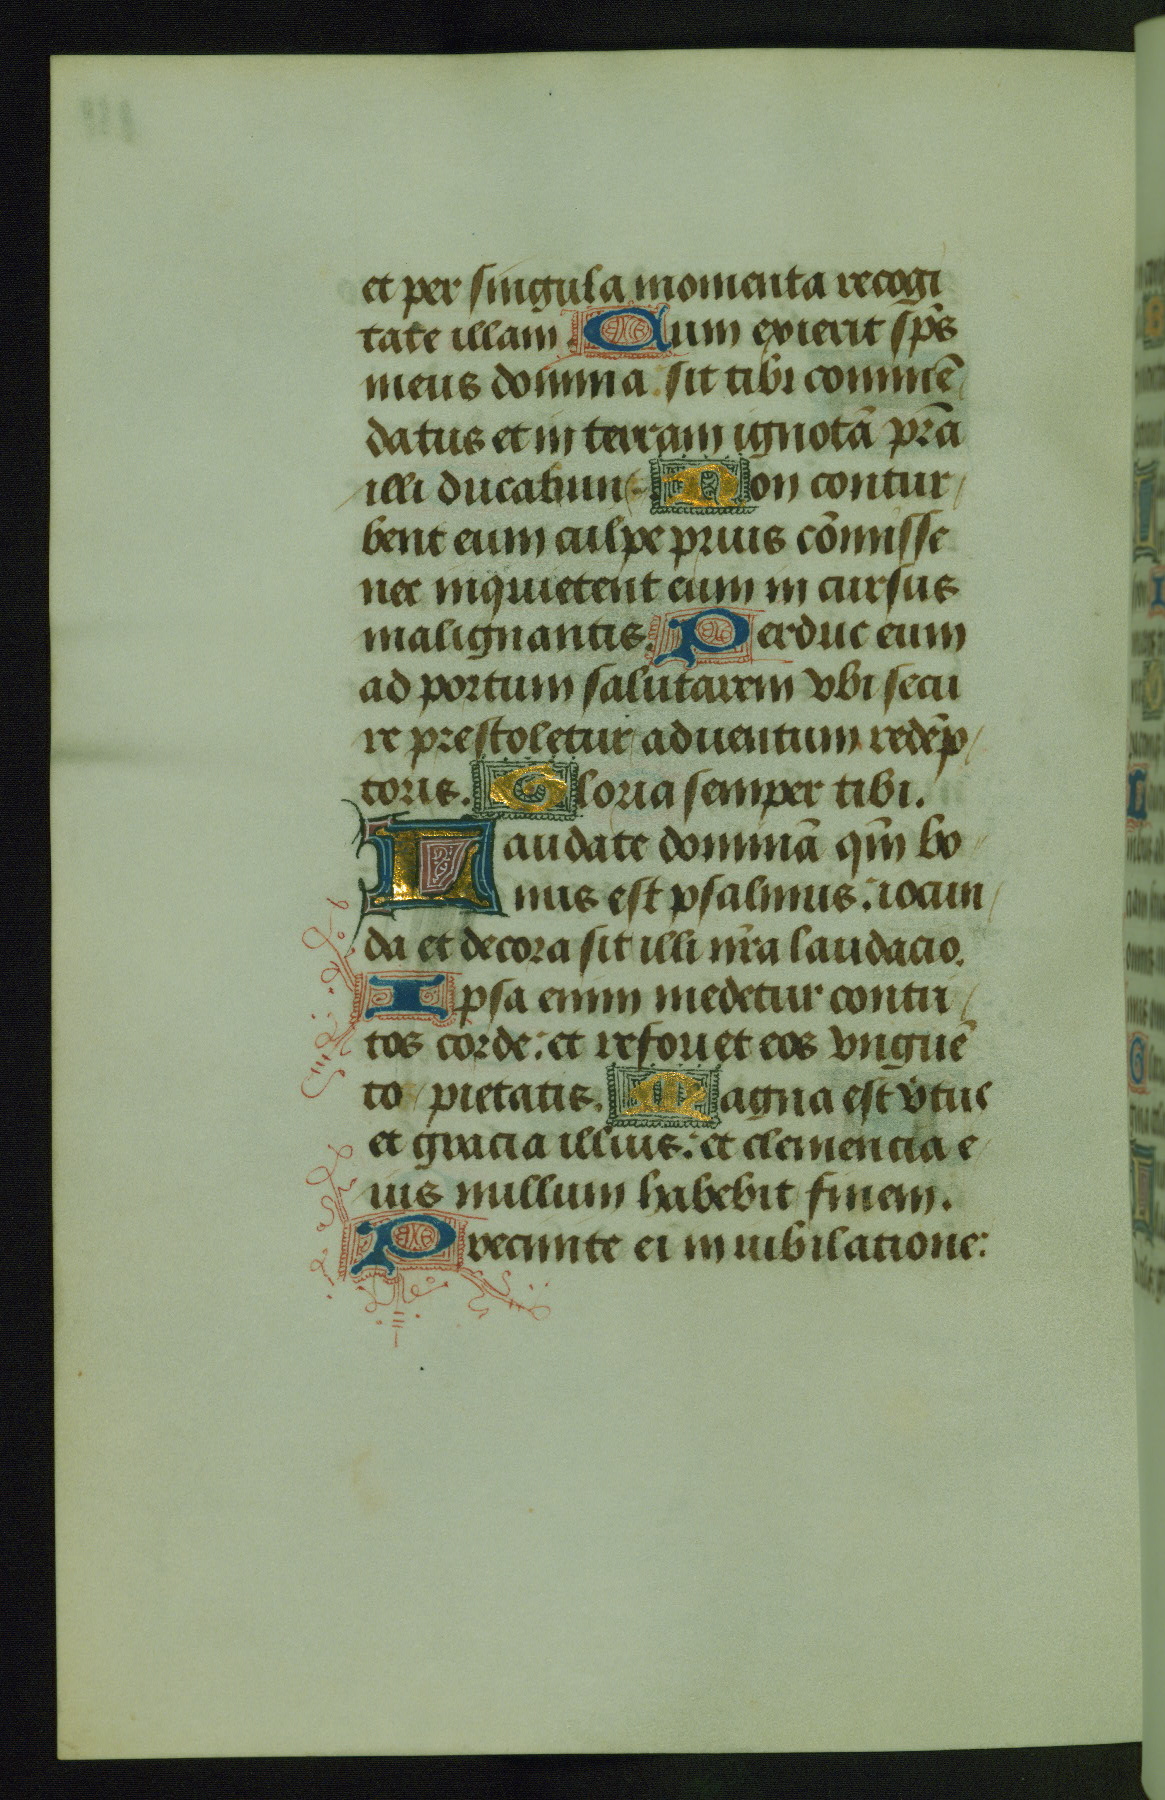 et per singula momenta recogi
tate illam. Cum exierit sp̄s
meus domina: sit tibi commē
datus et in terram ignotā p̄ra
illi ducatum. Non contur
bent eum culpe prius cōmisse
nec inquietent eum in cursus
malignantis. Perduc eum
ad portum salutarem vbi secu
re prestoletur aduentum redēp
toris. Gloria semper tibi.
Laudate dominā qm̄ bo
nus est psalmus: iocun
da et decora sit illi nr̄a laudacio.
Ipsa enim medetur contri
tos corde: et refouet eos vnguē
to pietatis. Magna est v̄tus
et gracia illius: et clemencia e
ius nullum habebit finem.
Precinite ei in iubilatione: